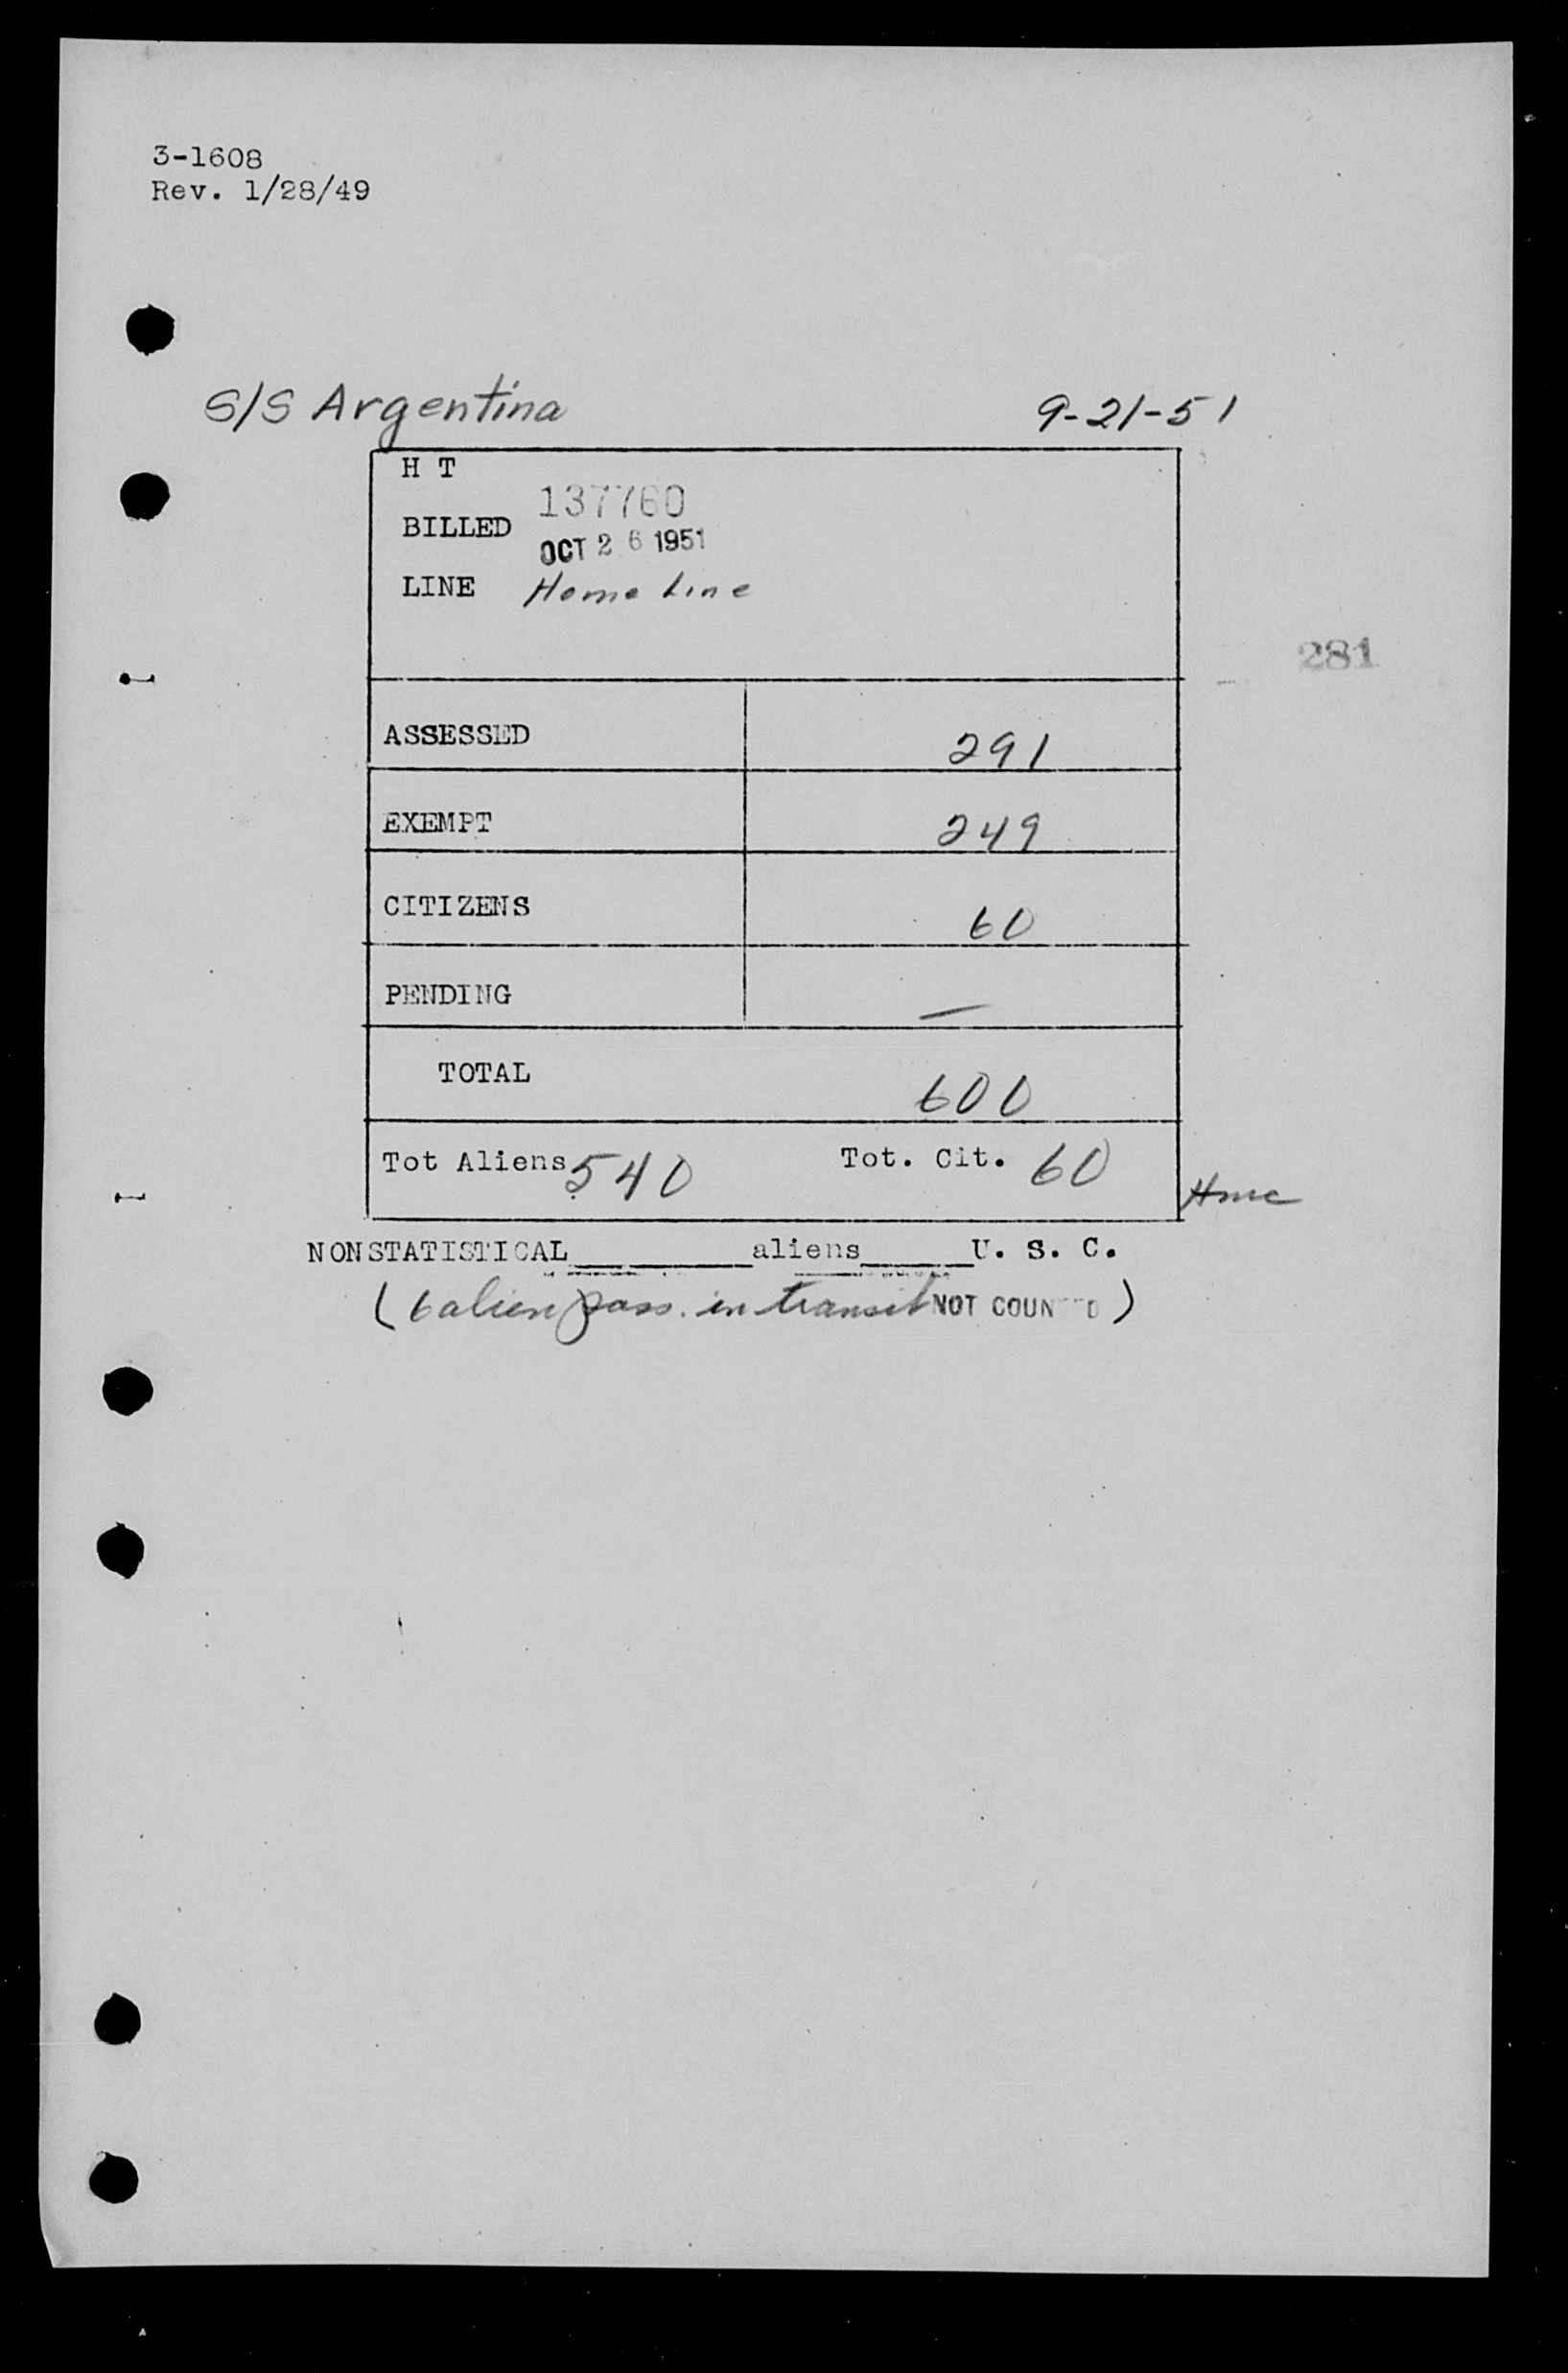 3-1608
Rev. 1/28/49
S/S Argentina 9-21-51
H T
137760
BILLED
OCT 26 1951
LINE Home Line
281
ASSESSED 291
EXEMPT 249
CITIZENS 60
PENDING —
TOTAL 600
Tot Aliens 540 Tot. Cit. 60
NONSTATISTICAL________aliens_____U. S. C.
(6 alien pass. in transit NOT COUNTED)